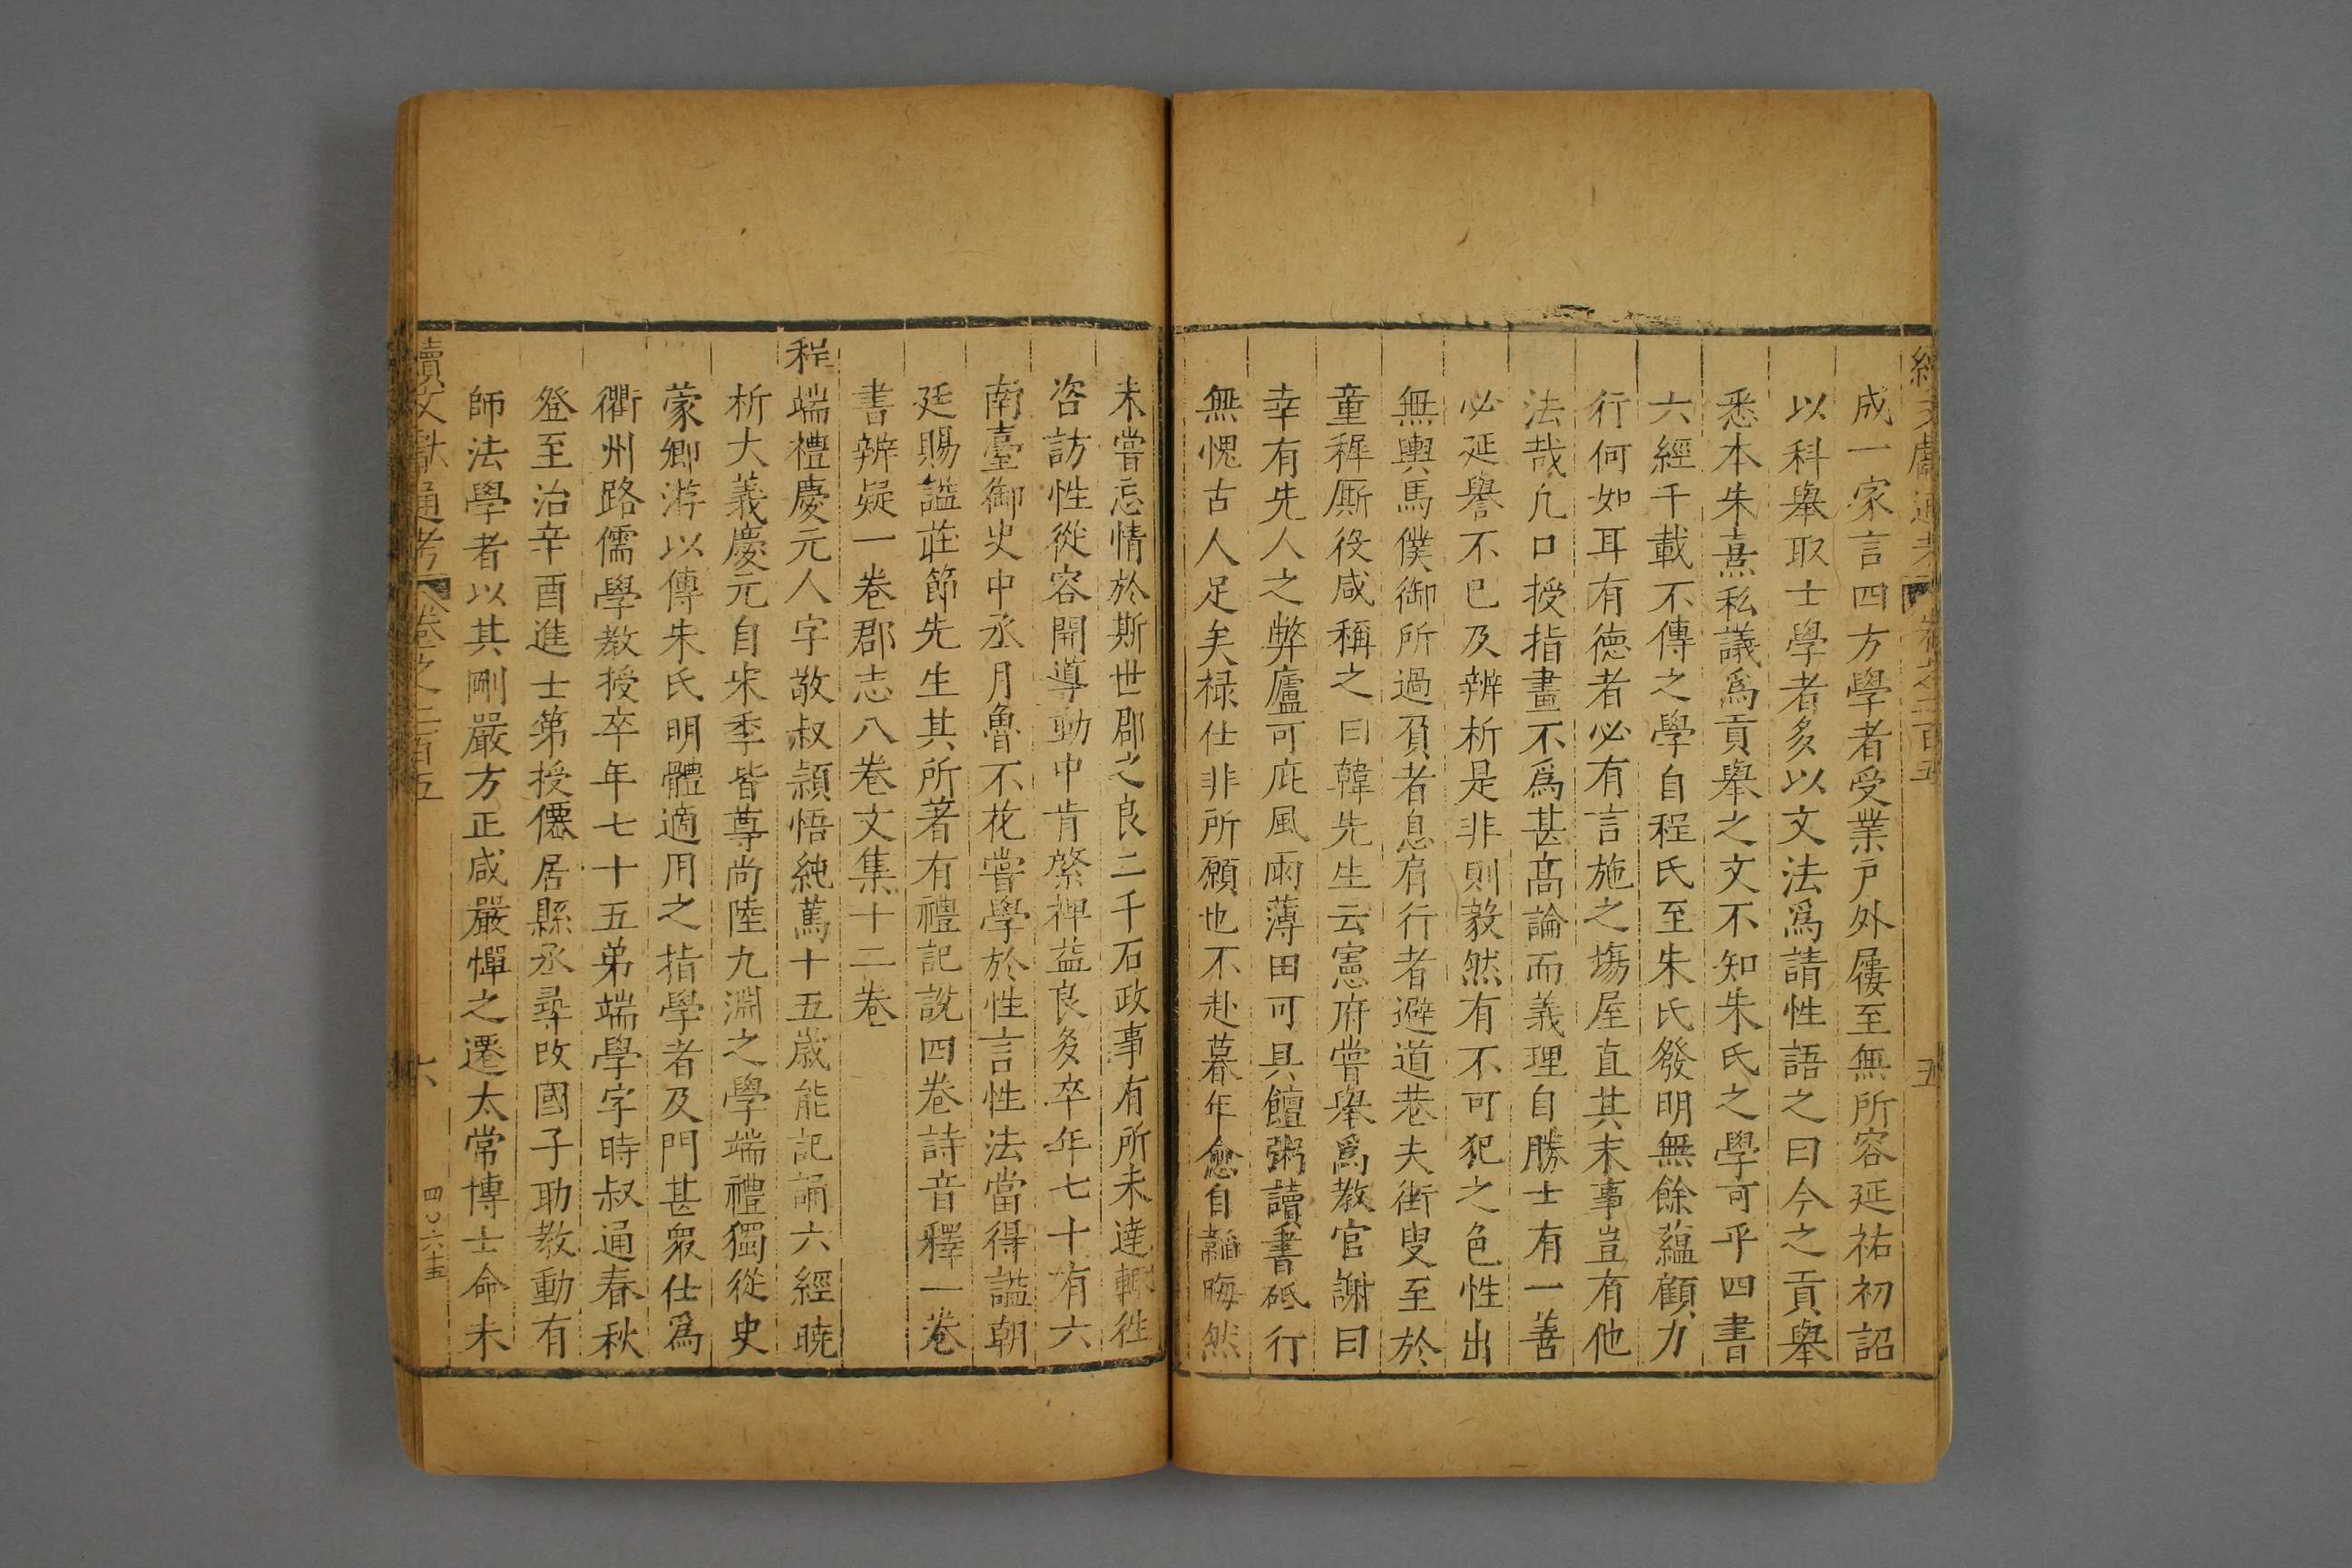 續文獻通考 卷之二百五 五
成一家言四方學者受業戸外屨至無所容延祐初詔
以科舉取士學者多以文法爲請性語之曰今之貢舉
悉本朱熹私議爲貢舉之文不知朱氏之學可乎四書
六經千載不傳之學自程氏至朱氏發明無餘蘊顧力
行何如耳有德者必有言施之塲屋直其末事豈有他
法哉凢口授指畫不爲甚髙論而義理自勝士有一善
必延譽不已及辨析是非則毅然有不可犯之色性出
無輿馬僕御所過負者息肩行者避道巷夫街叟至於
童穉厮役咸稱之曰韓先生云憲府嘗舉爲教官謝曰
幸有先人之弊廬可庇風雨薄田可具饘粥讀書砥行
無愧古人足矣禄仕非所願也不赴暮年愈自韜晦然
未嘗忘情於斯世郡之良二千石政事有所未達輙徃
咨訪性從容開導動中肯綮裨益良多卒年七十有六
南臺御史中丞月魯不花嘗學於性言性法當得謚朝
廷賜謚莊節先生其所著有禮記說四卷詩音釋一卷
書辨疑一卷郡志八卷文集十二卷
程端禮慶元人字敬叔頴悟純篤十五歳能記誦六經曉
析大義慶元自宋季皆尊尚陸九淵之學端禮獨從史
蒙卿游以傳朱氏明體適用之指學者及門甚衆仕爲
衢州路儒學教授卒年七十五弟端學字時叔通春秋
登至治辛酉進士第授僊居縣丞尋改國子助教動有
師法學者以其剛嚴方正咸嚴憚之遷太常博士命未
續文獻通考 卷之二百五 六